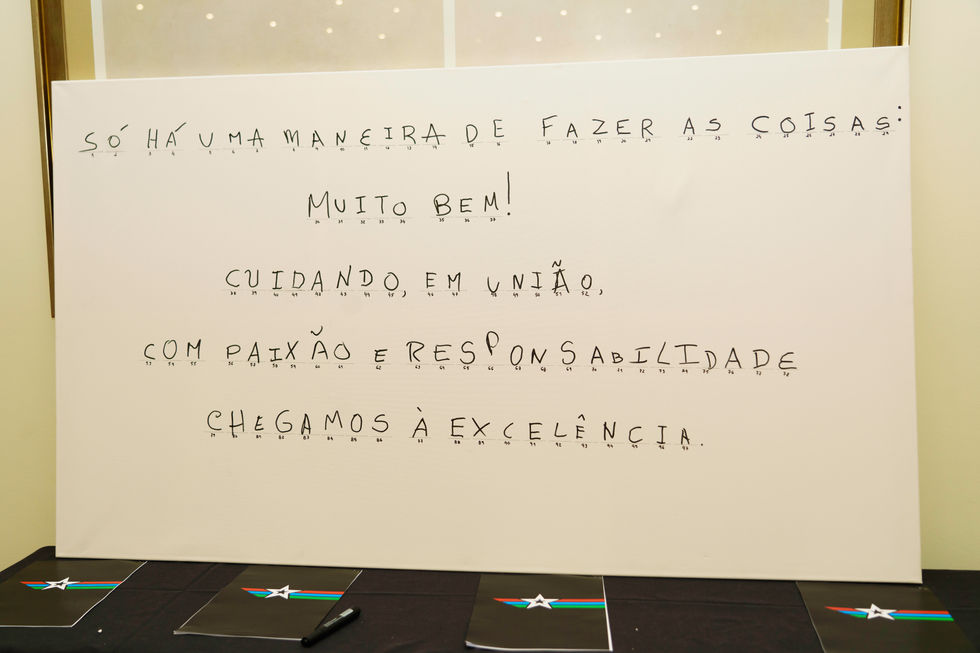 SÓ HÁ UMA MANEIRA DE FAZER AS COISAS:
MUITO BEM!
CUIDANDO, EM UNIÃO,
COM PAIXÃO E RESPONSABILIDADE
CHEGAMOS À EXCELÊNCIA.